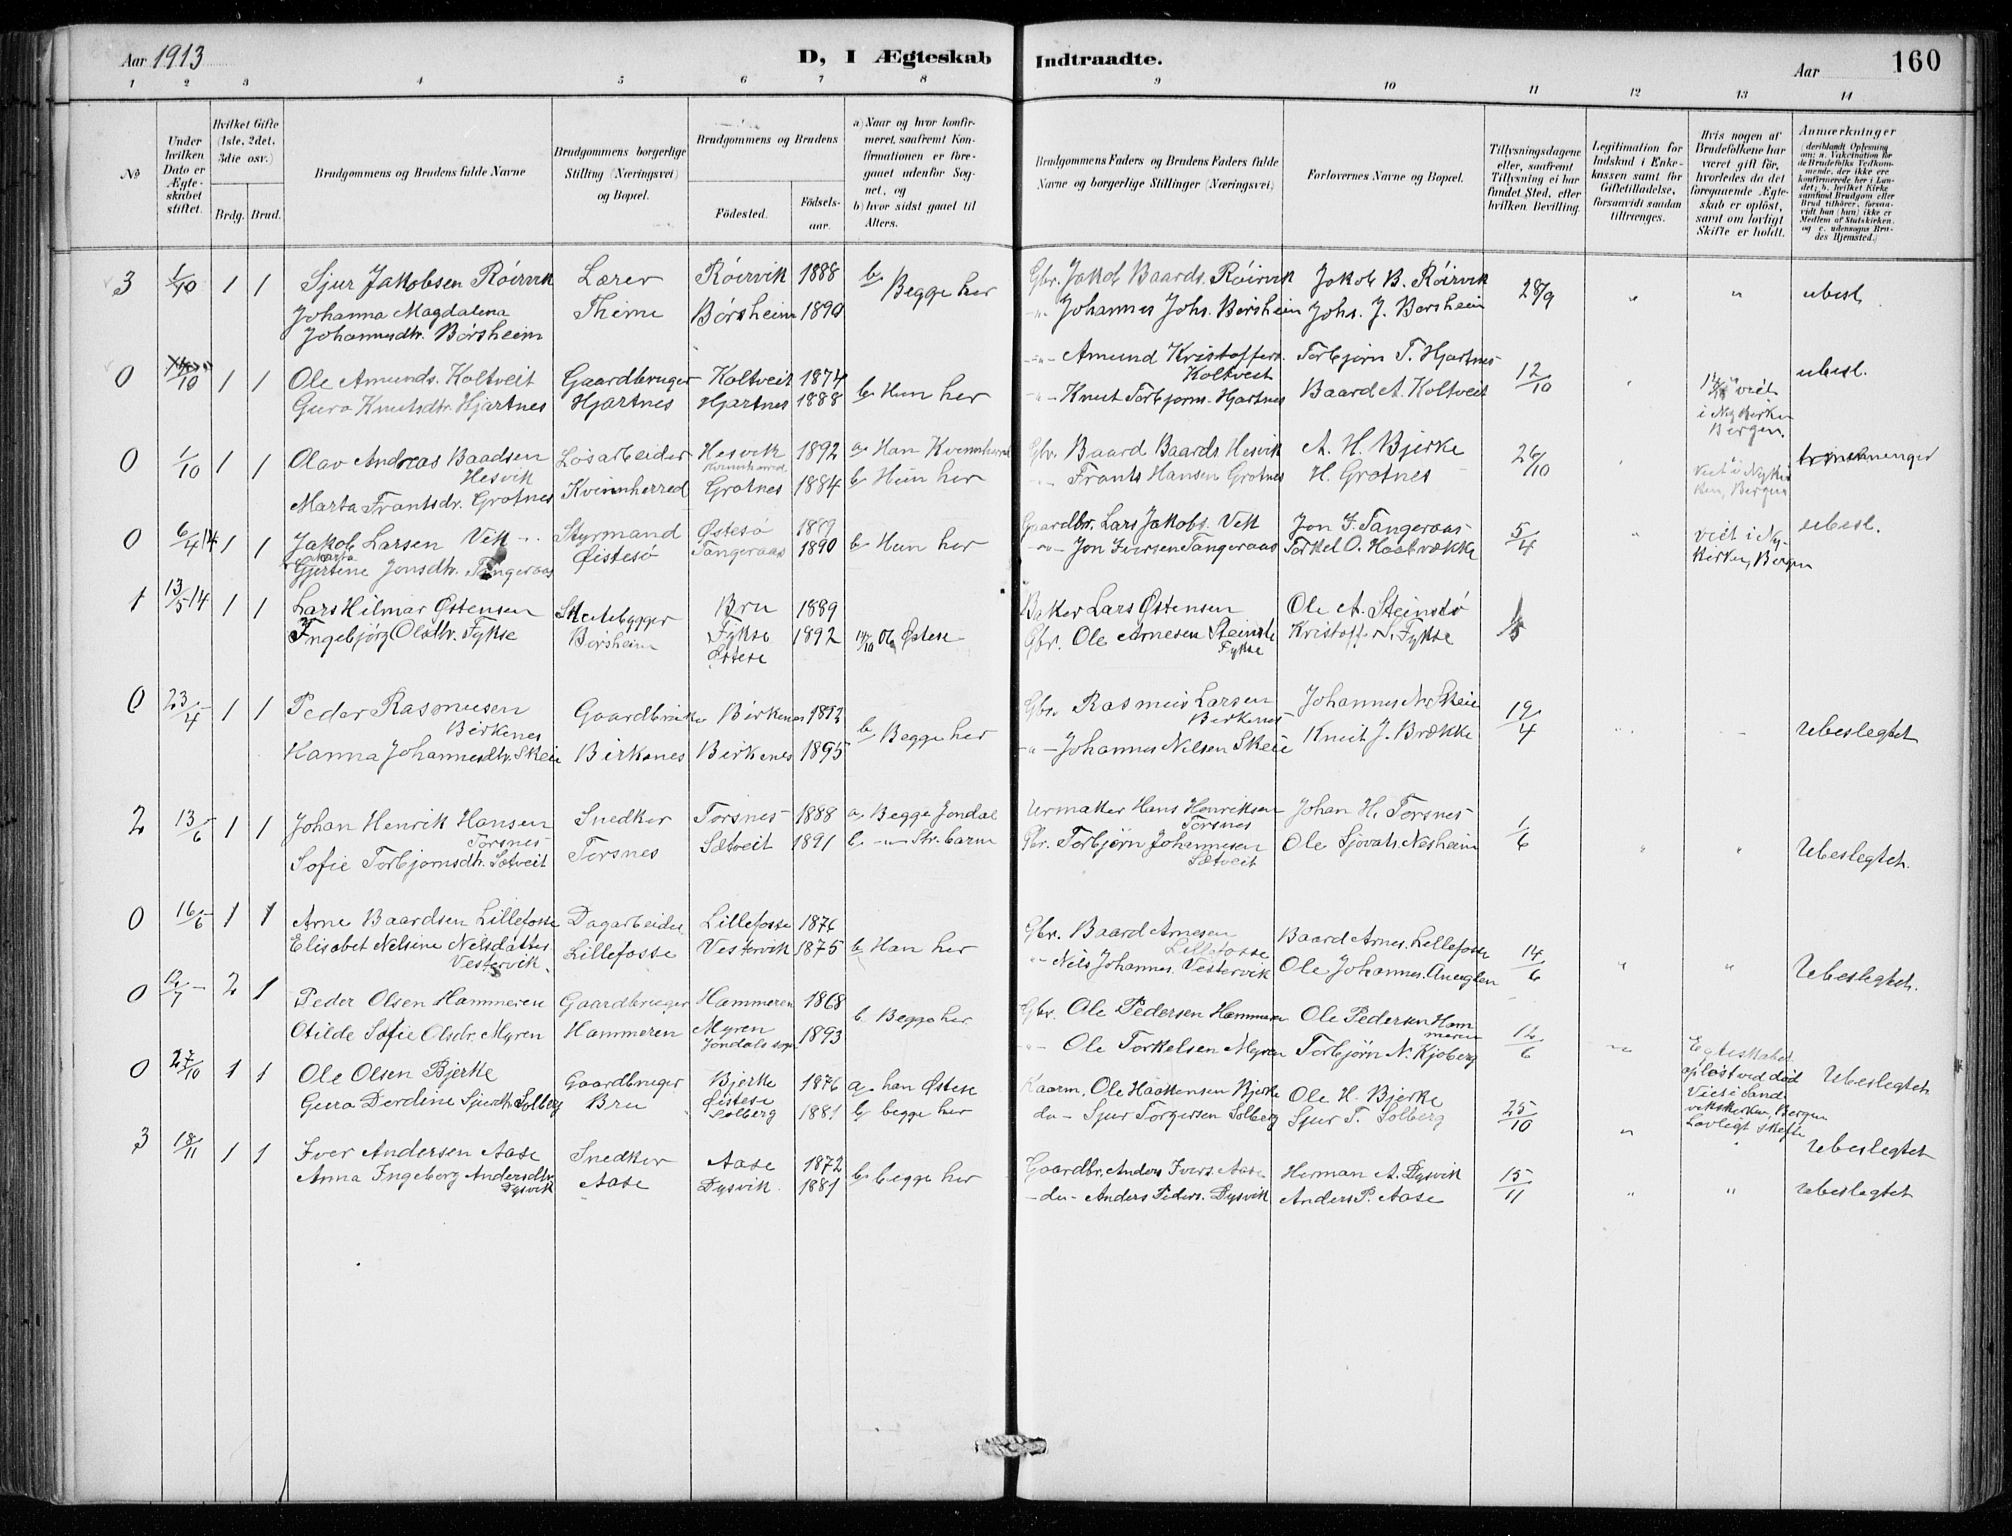 Aar 1913
D, I Ægteskab Indtraadte.
Aar
160
1 2 3 4 5 6 7 8 9 10 11 12 13 14
No
Under hvilken Dato er Ægteskabet stiftet.
Hvilket Gifte (1ste, 2det, 3die osv.)
Brdg. Brud.
Brudgommens og Brudens fulde Navne
Brudgommens borgerlige Stilling (Næringsvei) og Bopæl.
Brudgommens og Brudens
Fødested.
Fødsels-aar.
a) Naar og hvor konfirmeret, saafremt Konfirmationen er foregaaet udenfor Sognet, og
b) hvor sidst gaaet til Alters.
Brudgommens Faders og Brudens Faders fulde Navne og borgerlige Stillinger (Næringsvei)
Forlovernes Navne og Bopæl.
Tillysningsdagene eller, saafremt Tillysning ei har fundet Sted, efter hvilken Bevilling.
Legitimation for Indskud i Enkekassen samt for Giftetilladelse, forsaavidt saadan tiltrænges.
Hvis nogen af Brudefolkene har været gift før, hvorledes da det foregaaende Ægteskab er opløst, samt om lovligt Skifte er holdt.
Anmærkninger (deriblandt Oplysning om: a. Vaccination for de Brudefolks Vedkommende, der ikke ere konfirmerede her i Landet; b. hvilket Kirkesamfund Brudgom eller Brud tilhører, forsaavidt han (hun) ikke er Medlem af Statskirken, og c. udensogns Brudes Hjemsted.)
3 1/10 1 1 Sjur Jakobsen Röirvik Lærer Röirvik 1888 b, Begge her Gbr. Jakob Baards. Röirvik Jakob B. Röirvik 28/9 " " ubesl.
Johanna Magdalena Thime Börsheim 1890 -"- Johannes Johs. Børsheim Johs. J. Børsheim
Johannesdtr. Börsheim
0 /10 1 1 Ole Amunds. Koltveit Gaardbruger Koltveit 1874 b, Hun her -"- Amund Kristoffers. Koltveit Torbjørn T. Hjartnes 12/10 " viet i Nykirken Bergen. ubesl.
Guro Knutsdtr. Hjartnes Hjartnes Hjartnes 1888 -"- Knut Torbjørns. Hjartnes Baard A. Koltveit
0 1/10 1 1 Olav Andreas Baadsen Hesvik Løsarbeider Hesvik Kvinnherred 1892 a, Han Kvinnherred Gbr. Baard Baards Hesvik A. H. Bjerke 26/10 " viet i Nykirken, Bergen
Marta Frantsdr. Grotnes Kvinnherred Grotnes 1884 b, Hun her Frants Hansen Grotnes H. Grotnes
0 6/4 14 1 1 Jakob Larsen Vik Styrmand Østesø b, Hun her Gaardbr. Lars Jakobs. Vik Jon J. Tangeraas 5/4 " viet i Nykirken, Bergen ubesl.
Gjertine Jonsdtr. Tangeraas Øistesø Tangeraas 1890 -"- Jon Iversen Tangeraas Torkel O.
1 13/5 14 1 1 Lars Hilmar Østensen Bru 1889 Baker Lars Østensen Ole A. Steinstø
Ingebjörg Olsdtr. Fykse Børsheim Fykse Østese 1892 06 Østese Gbr. Ole Arnesen Steinstø Fykse Kristoff. N. Fykse
0 23/4 1 1 Peder Rasmusen Birkenes Gaardbruker Birkenes b, Begge her Gbr. Rasmus Larsen Birkenes Johannes N. Skeie 19/4 Ubeslegtet
Hanna Johannesdtr. Skeie Birkenes Birkenes 1895 -"- Johannes Nelsen Skeie Knut J. Brække
2 13/6 1 1 Johan Henrik Hansen Torsnes Snedker Torsnes 1888 a, Begge Jondal Urmaker Hans Henriksen Torsnes Johan H. Torsnes 1/6 " " Ubeslegtet.
Sofie Torbjørnsdtr. Sætveit Torsnes Sætveit 1891 b, -"- Str.barm Gbr. Torbjørn Johannesen Sætveit Ole Sjovats. Nesheim
0 16/6 1 1 Arne Baardsen Lillefosse Dagarbeider Lillefosse 1876 Gbr. Baard Arnesen Lillefosse Baard Arnes. Lillefosse 14/6 " " Ubeslegtet.
Elisabet Nelsine Nelsdatter Vestervik. Lillefosse Vestervik 1875 b, Han her "- Nels Johannes. Vestervik Ole Johannes.
0 12/7 2 1 Peder Olsen Hammeren Gaardbruger Hammeren 1868 b, Begge her Gbr. Ole Pedersen Hammeren Ole Pedersen Hammeren 12/6 " Egteskabet opløst ved død Ubeslegtet
Otilde Sofie Olsdr. Myren Hammeren Myren Jondals sogn 1893 "- Ole Torkelsen Myren Torbjørn N. Kjoberg
0 27/10 1 1 Ole Olsen Bjerke Gaardbruger Bjerke Øistese 1876 a, han Østese Kaarm. Ole Haakensen Bjerke Ole H. Bjerke 25/10 " Viet i Sandvikskirken, Bergen Lovlegt skefte Ubeslegtet
Guro Dordine Sjurdtr. Solberg Bru Solberg 1881 b, begge her do- Sjur Torgersen Solberg Sjur T. Solberg
3 18/11 1 1 Iver Andersen Aase Snedker Aase 1872 b, begge her Gaardbr. Anders Ivers. Aase Herman A. Dysvik 15/11 " " Ubeslegtet
Anna Ingeborg Andersdtr. Dysvik Aase Dysvik 1881 -do- Anders Peders. Dysvik Anders P. Aase